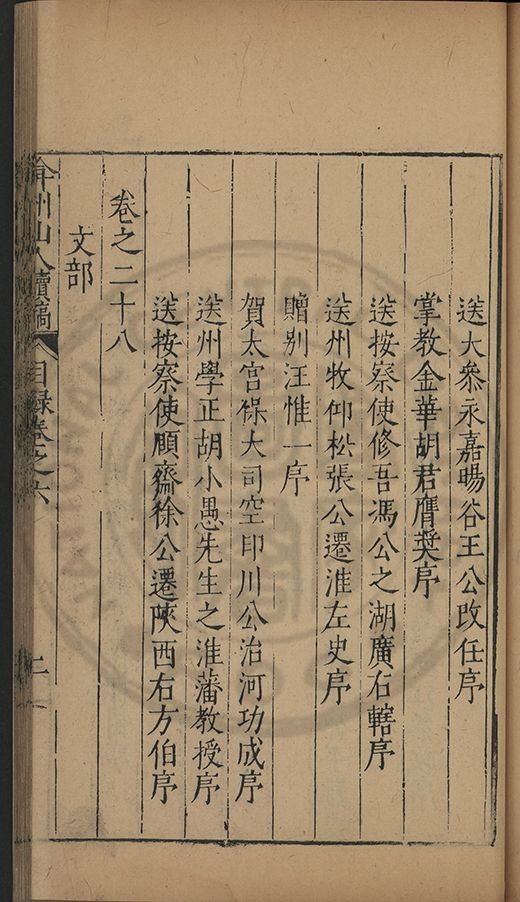 送大參永嘉暘谷王公改任序
掌教金華胡君膺奬序
送按察使修吾馮公之湖廣右轄序
送州牧仰松張公遷淮左史序
贈別汪惟一序
賀太宫保大司空印川公治河功成序
送州學正胡小愚先生之淮藩教授序
送按察使順齋徐公遷陝西右方伯序
卷之二十八
文部
弇州山人續稿
目録卷之六
二